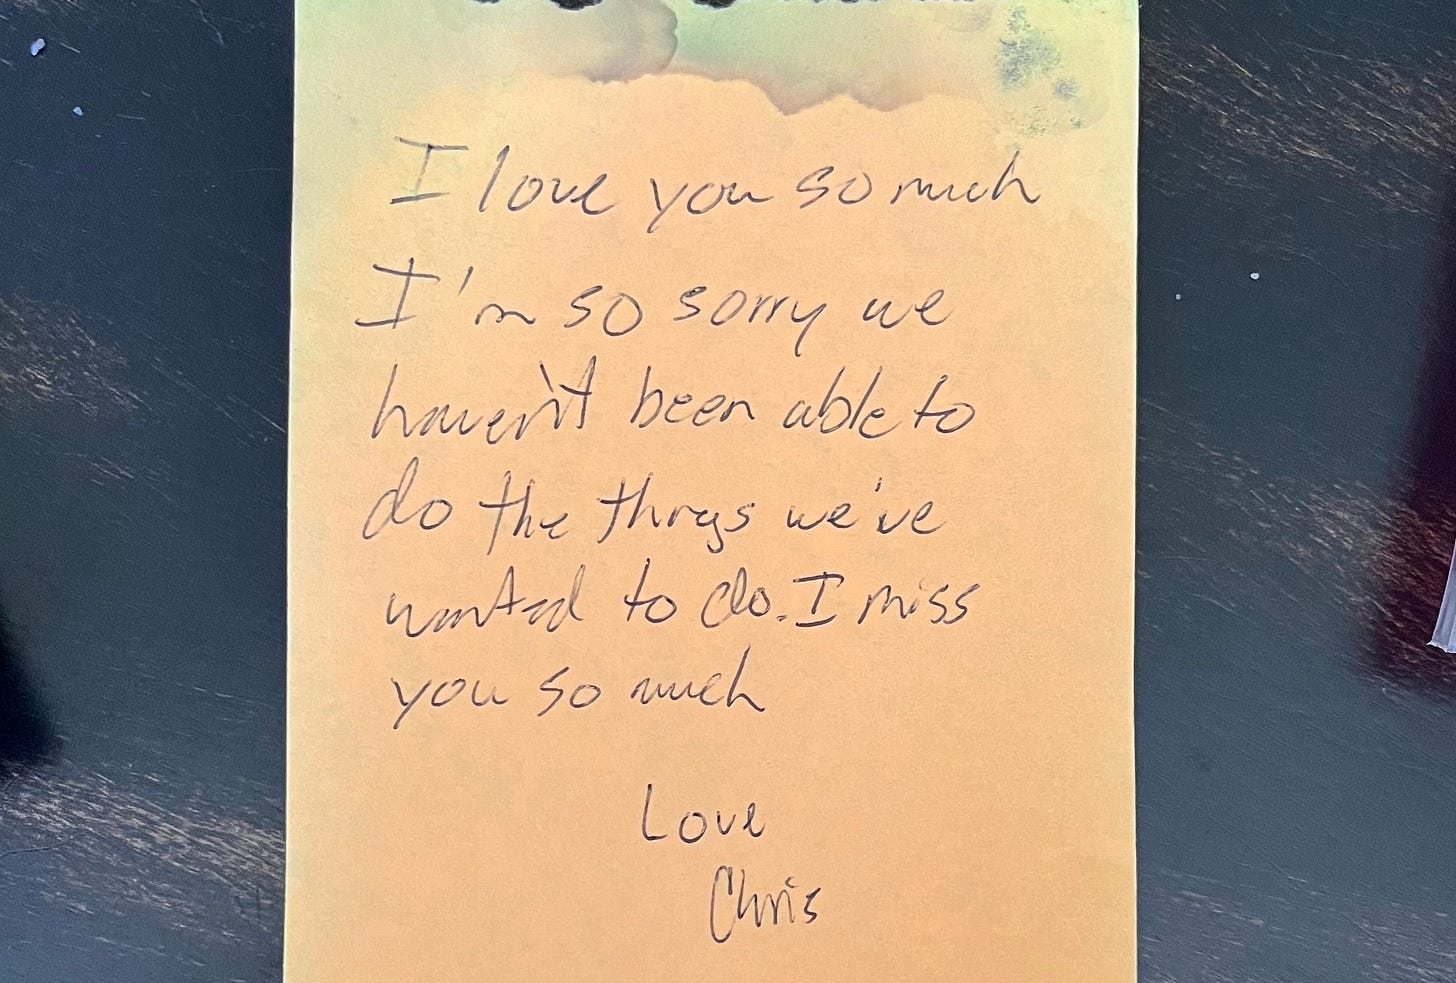 I love you so much
I'm so sorry we
haven't been able to
do the things we've
wanted to do. I miss
you so much
Love
Chris